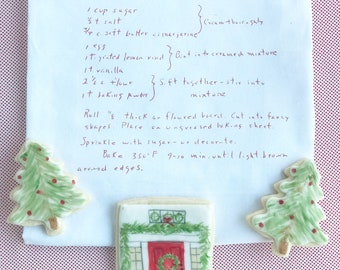 1 cup sugar
½ t salt
¾ c. soft butter or margarine
Cream thoroughly
1 egg
1 t grated lemon rind
Beat into creamed mixture
1 t vanilla
2 ½ c flour
1 t baking powder
Sift together - stir into
mixture
Roll ⅛ thick on floured board. Cut into fancy
shapes. Place on ungreased baking sheet.
Sprinkle with sugar - or decorate.
Bake 350°F 9-10 min. until light brown
around edges.